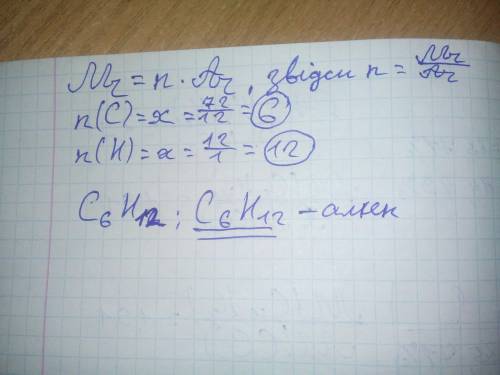 Mr = n · Ar, звідси n = Mr/Ar
n(C) = x = 72/12 = 6
n(H) = x = 12/1 = 12
C₆H₁₂; C₆H₁₂ – алкен